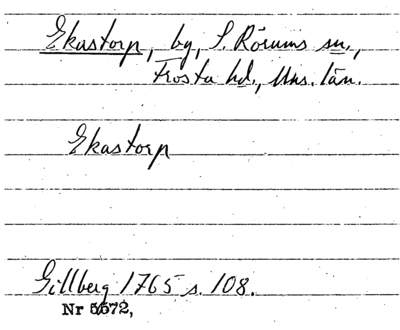 Ekastorp, by, S. Rörums sn.,
Frosta hd., Mns. län.
Ekastorp
Gillberg 1765 s. 108.
Nr 5572,